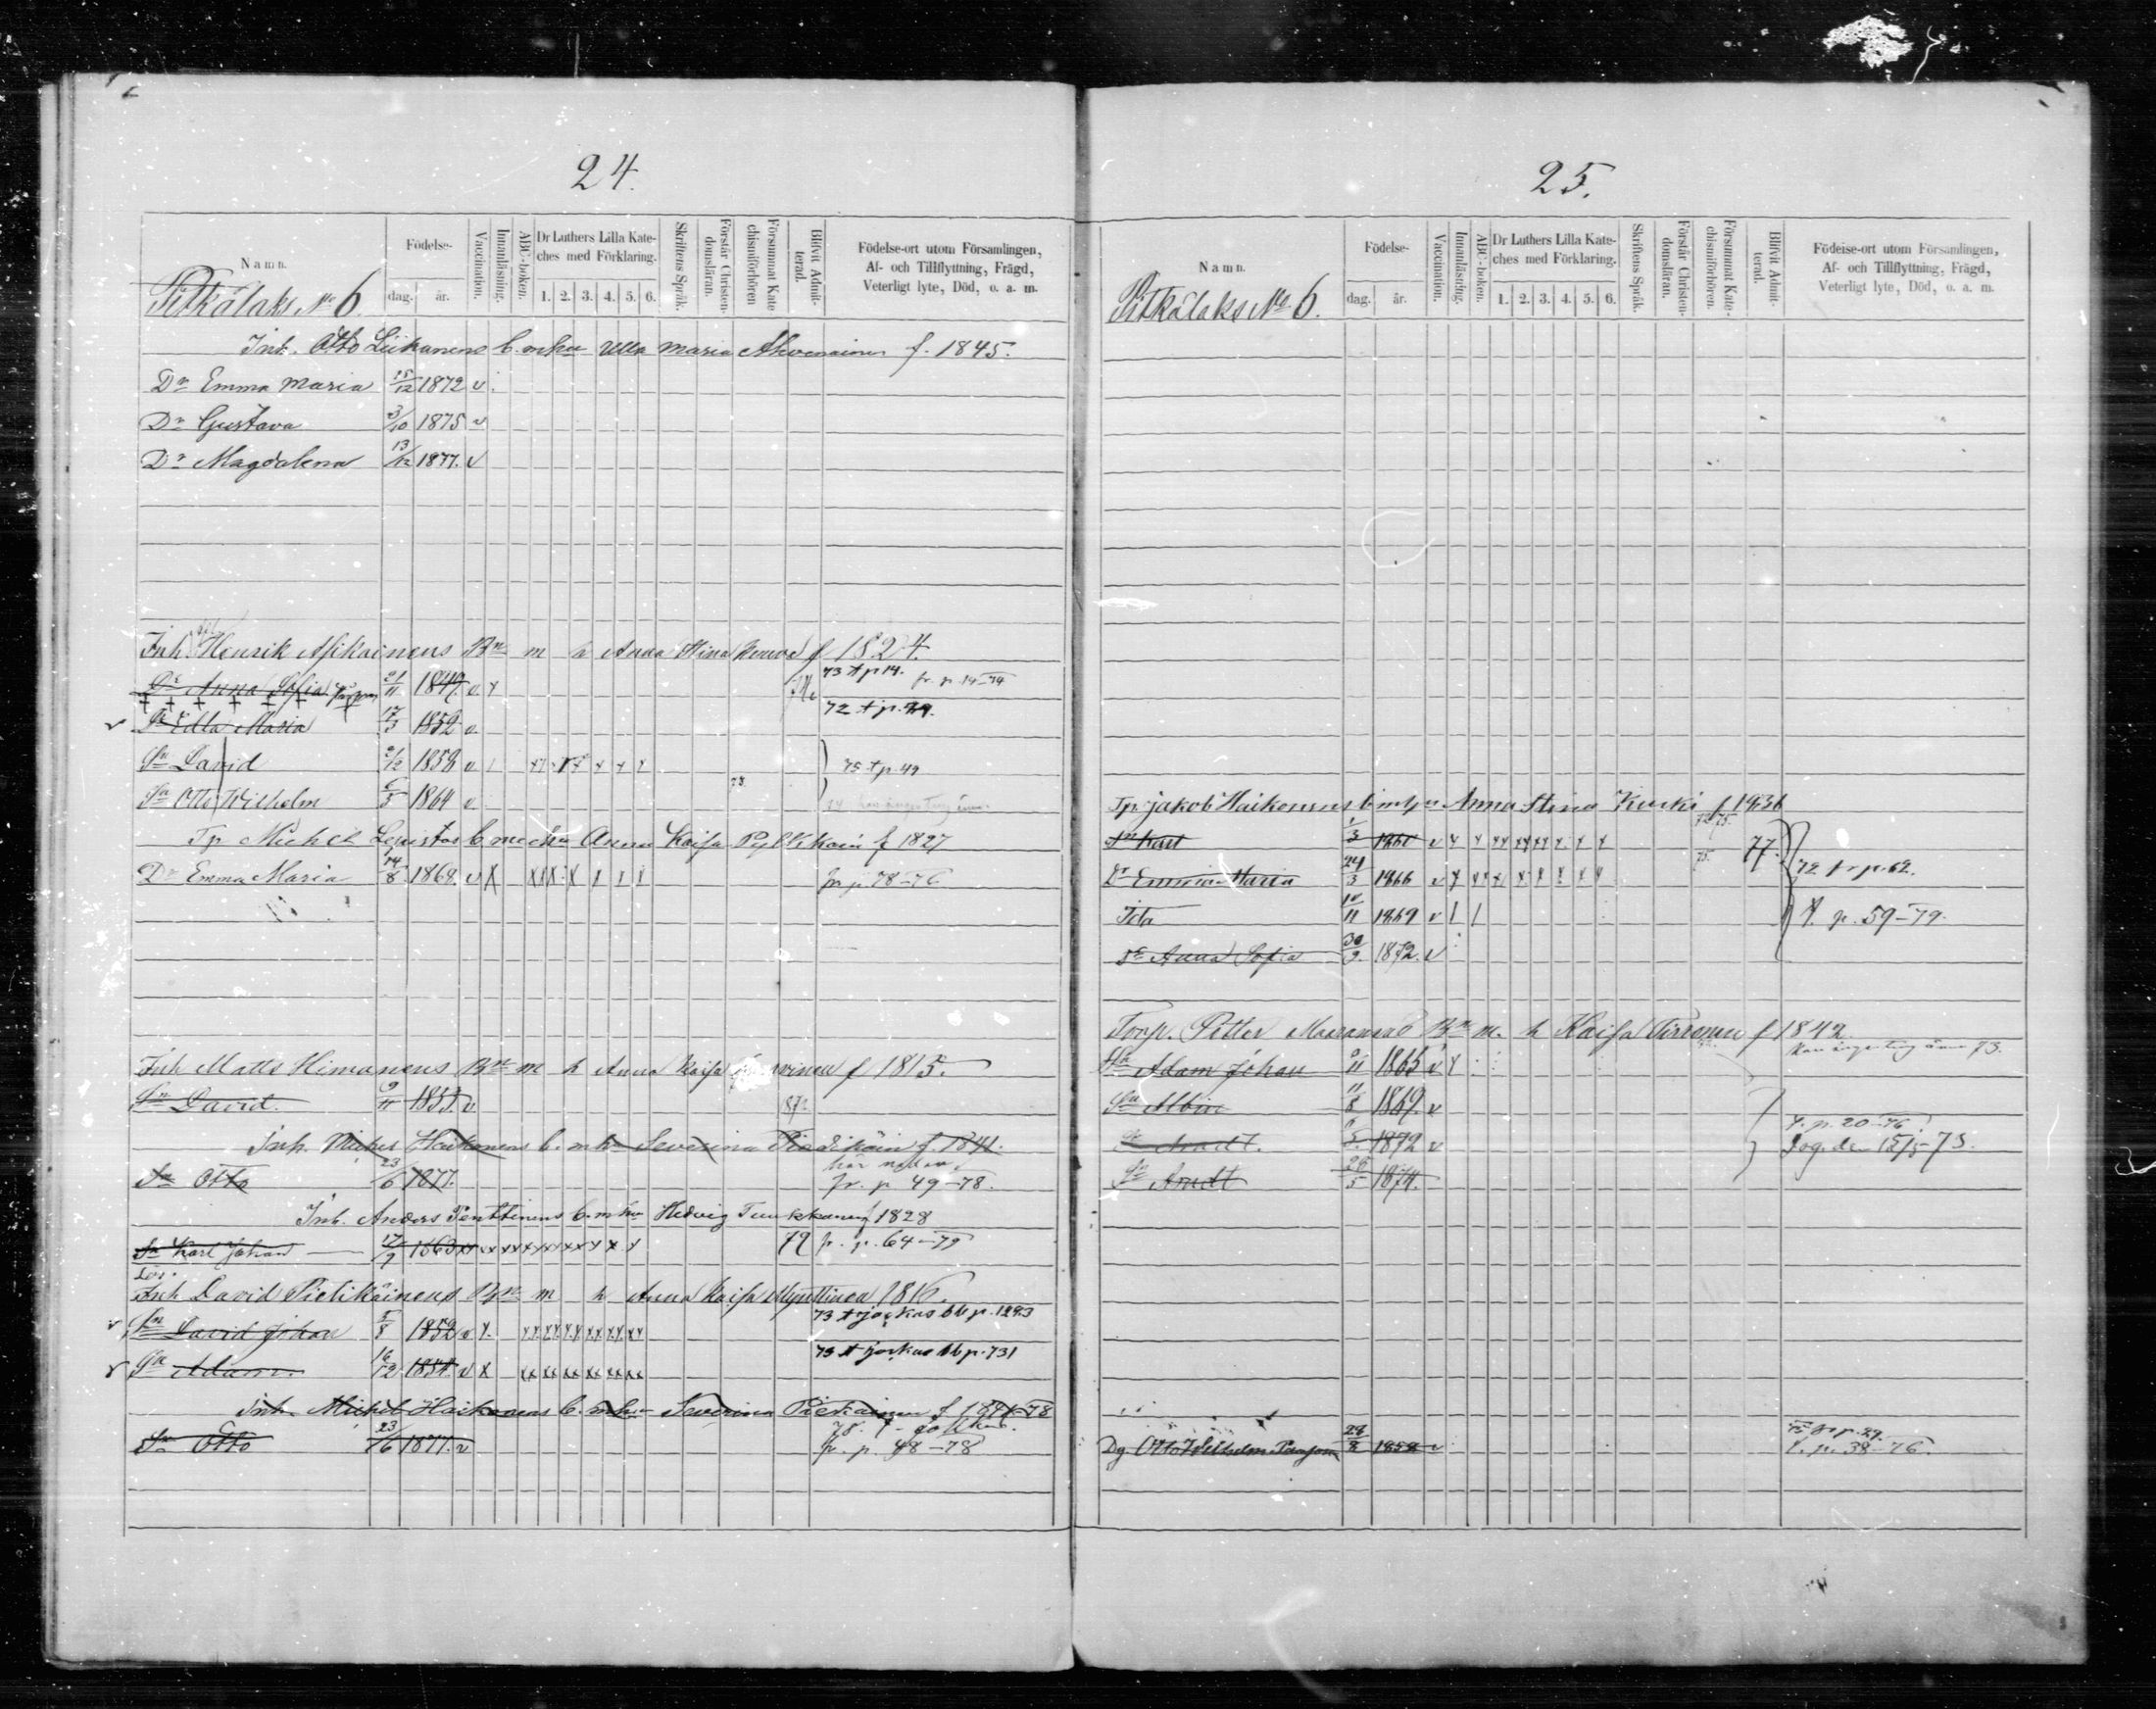 24.
Namn.
Födelse-
dag. år.
Vaccination.
Innanläsning.
ABC-boken.
Dr Luthers Lilla Kate-
ches med Förklaring.
1. 2. 3. 4. 5. 6.
Skriftens Språk.
Förstår Christen-
domsläran.
Försummat Kate
chismiförhören
Blifvit Admit-
terad.
Födelse-ort utom Församlingen,
Af- och Tillflyttning, Frägd,
Veterligt lyte, Död, o. a. m.
Pitkälaks No 6.
Inh. Otto Liikanens b. m hu Ulla Maria Ahvenainen f. 1845.
Dr Emma Maria 15/12 1872 v
Dr Gustava 3/10 1875 v
Dr Magdalena 13/12 1877. v
Inh. Henrik Asikainens Brn m h Anna Stina f 1824.
Dr Anna Sofia 21/11 1847. v x 73 t p 14. fr. p. 14-74
Dr Ulla Maria 17/3 1852 v. 72 t p.
Sn David 2/2 1858 v 75 t p. 49
Sn Otto Wilhelm 6/5 1864 v
Tp Michel Lepistös b med hu Anna Kaisa f 1827
Dr Emma Maria 14/8 1868. v x fr p 78-76.
Inh Matts Himanens Brn m h Anna Kaisa f 1815.
Sn David. 9/11 1855. v 872
Inh. Michel Haikonens b. m hu Severina f. 1841.
här nedan.
Sn Otto 23/6 1877. fr. p 49-78.
Inh. Anders Penttinens b. m hu Hedvig Tuukkanen f 1828
Sn Karl Johan 17/7 1863 79 fr. p. 64-79
Lös.
Inh David Pietikäinens Brn m h Anna Kaisa Myyttinen 1816.
Sn David Johan 5/8 1852 v x. 73 t jockas bb p. 1293
Sn Adam. 16/12 1854. v x 73 t jockas bb p. 731
Inh. Michel Haikonens b. m hu Severina f 1841-78
Sn Otto 23/6 1877. v fr. p. 48-78
25.
Namn.
Födelse-
dag. år.
Vaccination.
Innanläsning.
ABC-boken.
Dr Luthers Lilla Kate-
ches med Förklaring.
1. 2. 3. 4. 5. 6.
Skriftens Språk.
Förstår Christen-
domsläran.
Försummat Kate-
chismiförhören.
Blifvit Admit-
terad.
Födelse-ort utom Församlingen,
Af- och Tillflyttning, Frägd,
Veterligt lyte, Död, o. a. m.
Pitkälaks No 6.
Tpr. Jakob Haikonens b m hu Anna Stina Kurki f 1836
Sn Karl 1/3 1860 v 77.
Dr Maria 24/3 1866 v 72 fr p. 62.
Ida 10/11 1869 v t. p. 59-79.
Dr Anna Sofia 30/9. 1872. v
Torp. Petter Brn m. h Kaisa Tirronen f 1842.
Sn Adam Johan 1865 v 73.
Sn Albin 11/8 1869. v
t. p. 20-76.
Arndt. 1872 v Dog den 15/5-73.
Sn Arndt 26/5 1874.
Dg Otto Wilhelm 28/8 1858 v t. p. 38-76.